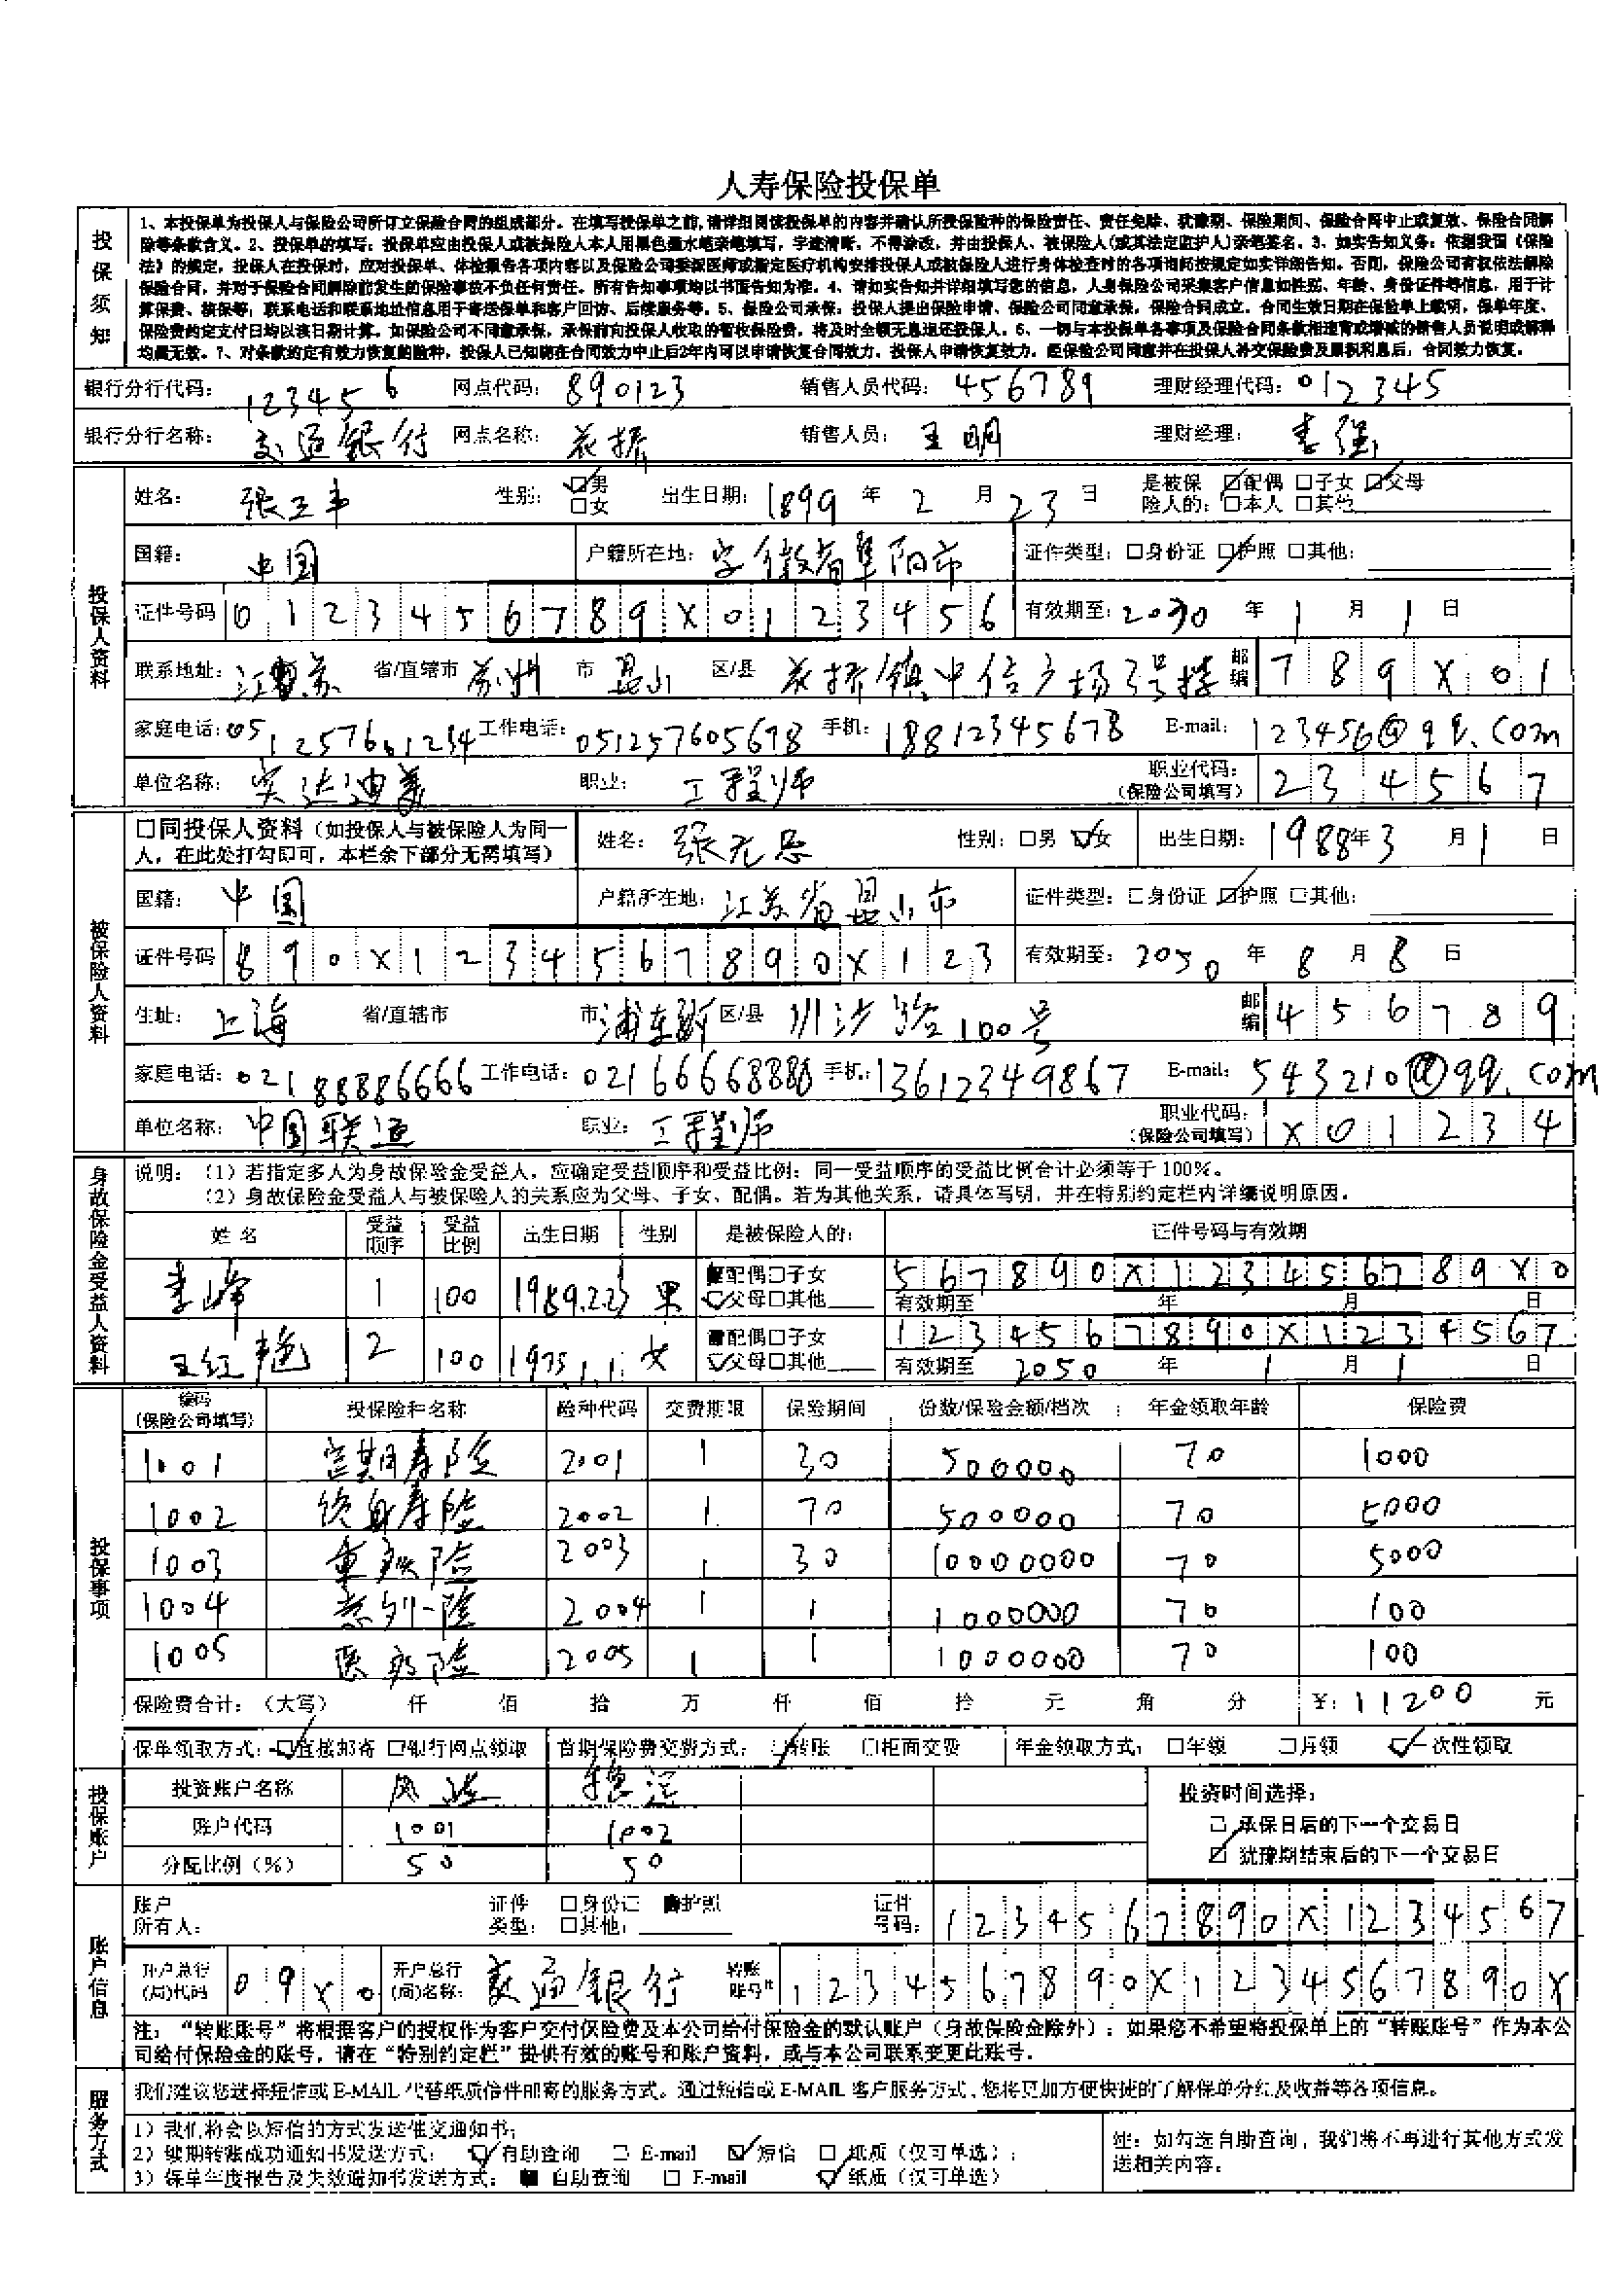 人寿保险投保单
投保须知
1、本投保单为投保人与保险公司所订立保险合同的组成部分。在填写投保单之前,请详细阅读投保单的内容并确认所投保险种的保险责任、责任免除、犹豫期、保险期间、保险合同中止或复效、保险合同解
除等条款含义。2、投保单的填写：投保单应由投保人或被保险人本人用黑色墨水笔亲笔填写，字迹清晰，不得涂改，并由投保人、被保险人(或其法定监护人)亲笔签名。3、如实告知义务：依据我国《保险
法》的规定，投保人在投保时，应对投保单、体检报告各项内容以及保险公司委派医师或指定医疗机构安排投保人或被保险人进行身体检查时的各项询问按规定如实详细告知。否则，保险公司有权依法解除
保险合同，并对于保险合同解除前发生的保险事故不负任何责任。所有告知事项均以书面告知为准。4、请如实告知并详细填写您的信息，人身保险公司采集客户信息如性别、年龄、身份证件等信息，用于计
算保费、核保等；联系电话和联系地址信息用于寄送保单和客户回访、后续服务等。5、保险公司承保：投保人提出保险申请、保险公司同意承保，保险合同成立。合同生效日期在保险单上载明，保单年度、
保险费约定支付日均以该日期计算。如保险公司不同意承保，承保前向投保人收取的暂收保险费，将及时全额无息退还投保人。6、一切与本投保单各事项及保险合同条款相违背或增减的销售人员说明或解释
均属无效。7、对条款约定有效力恢复的险种，投保人已知晓在合同效力中止后2年内可以申请恢复合同效力，投保人申请恢复效力，经保险公司同意并在投保人补交保险费及累积利息后，合同效力恢复。
银行分行代码： 123456 网点代码： 890123 销售人员代码： 456789 理财经理代码： 012345
银行分行名称： 交通银行 网点名称： 花桥 销售人员： 王明 理财经理： 李强
投保人资料
姓名： 张三丰 性别： ☑男 □女 出生日期： 1899 年 2 月 23 日 是被保险人的： ☑配偶 □子女 ☑父母 □本人 □其他
国籍： 中国 户籍所在地： 安徽省阜阳市 证件类型： □身份证 ☑护照 □其他：
证件号码 0 1 2 3 4 5 6 7 8 9 X 0 1 2 3 4 5 6 有效期至： 2030 年 1 月 1 日
联系地址： 江苏 省/直辖市 苏州 市 昆山 区/县 花桥镇中信广场3号楼 邮编 7 8 9 X 0 1
家庭电话： 051257601234 工作电话： 051257605678 手机： 18812345678 E-mail： 123456@qq.com
单位名称： 实达迪美 职业： 工程师 职业代码：（保险公司填写） 2 3 4 5 6 7
被保险人资料
□同投保人资料（如投保人与被保险人为同一人，在此处打勾即可，本栏余下部分无需填写） 姓名： 张无忌 性别： □男 ☑女 出生日期： 1988 年 3 月 1 日
国籍： 中国 户籍所在地： 江苏省昆山市 证件类型： □身份证 ☑护照 □其他：
证件号码 8 9 0 X 1 2 3 4 5 6 7 8 9 0 X 1 2 3 有效期至： 2050 年 8 月 8 日
住址： 上海 省/直辖市 市 浦东新 区/县 川沙路100号 邮编 4 5 6 7 8 9
家庭电话： 02188886666 工作电话： 02166668888 手机： 13612349867 E-mail： 543210@qq.com
单位名称： 中国联通 职业： 工程师 职业代码：（保险公司填写） X 0 1 2 3 4
身故保险金受益人资料
说明：（1）若指定多人为身故保险金受益人，应确定受益顺序和受益比例；同一受益顺序的受益比例合计必须等于100%。
（2）身故保险金受益人与被保险人的关系应为父母、子女、配偶。若为其他关系，请具体写明，并在特别约定栏内详细说明原因。
姓名 受益顺序 受益比例 出生日期 性别 是被保险人的： 证件号码与有效期
李峰 1 100 1989.2.23 男 ■配偶□子女 ☑父母□其他 5 6 7 8 9 0 X 1 2 3 4 5 6 7 8 9 X 0
有效期至 年 月 日
王红艳 2 100 1975.1.1 女 ■配偶□子女 ☑父母□其他 1 2 3 4 5 6 7 8 9 0 X 1 2 3 4 5 6 7
有效期至 2050 年 1 月 1 日
投保事项
编码（保险公司填写） 投保险种名称 险种代码 交费期限 保险期间 份数/保险金额/档次 年金领取年龄 保险费
1001 定期寿险 2001 1 30 500000 70 1000
1002 终身寿险 2002 1 70 500000 70 5000
1003 重疾险 2003 1 30 10000000 70 5000
1004 意外险 2004 1 1 1000000 70 100
1005 医疗险 2005 1 1 1000000 70 100
保险费合计：（大写） 仟 佰 拾 万 仟 佰 拾 元 角 分 ￥： 11200 元
保单领取方式： ☑直接邮寄 □银行网点领取 首期保险费交费方式： ☑转账 □柜面交费 年金领取方式： □年领 □月领 ☑一次性领取
投保账户
投资账户名称 风送 稳定 投资时间选择：
账户代码 1001 1002 □ 承保日后的下一个交易日
分配比例（%） 50 50 ☑ 犹豫期结束后的下一个交易日
账户信息
账户所有人： 证件类型： □身份证 ■护照 □其他： 证件号码： 1 2 3 4 5 6 7 8 9 0 X 1 2 3 4 5 6 7
开户总行(局)代码 0 9 X 0 开户总行(局)名称： 交通银行 转账账号 1 2 3 4 5 6 7 8 9 0 X 1 2 3 4 5 6 7 8 9 0 X
注：“转账账号”将根据客户的授权作为客户交付保险费及本公司给付保险金的默认账户（身故保险金除外）；如果您不希望将投保单上的“转账账号”作为本公
司给付保险金的账号，请在“特别约定栏”提供有效的账号和账户资料，或与本公司联系变更此账号。
服务方式
我们建议您选择短信或E-MAIL代替纸质信件邮寄的服务方式。通过短信或E-MAIL客户服务方式，您将更加方便快捷的了解保单分红及收益等各项信息。
1）我们将会以短信的方式发送催交通知书；
2）续期转账成功通知书发送方式： ☑ 自助查询 □ E-mail ☑ 短信 □ 纸质（仅可单选）；
3）保单年度报告及失效通知书发送方式： ■ 自助查询 □ E-mail ☑ 纸质（仅可单选）
注：如勾选自助查询，我们将不再进行其他方式发
送相关内容。